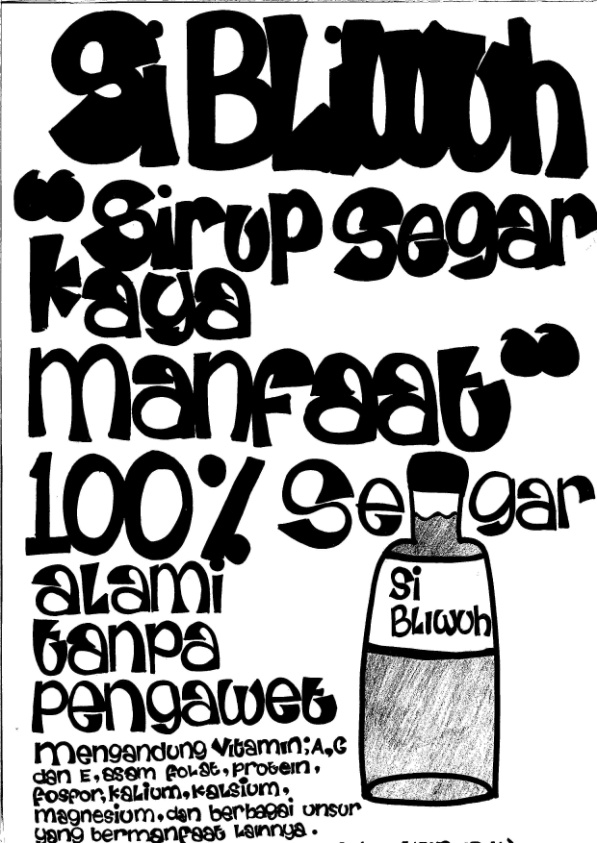 Si BLiwuh
“Sirup Segar
kaya
manfaat”
100% Segar
aLami
tanpa
pengawet
Si
BLiwuh
mengandung Vitamin; A, C
dan E, asam foLat, protein,
fospor, kaLium, kaLsium,
magnesium, dan berbagai unsur
yang bermanfaat Lainnya.